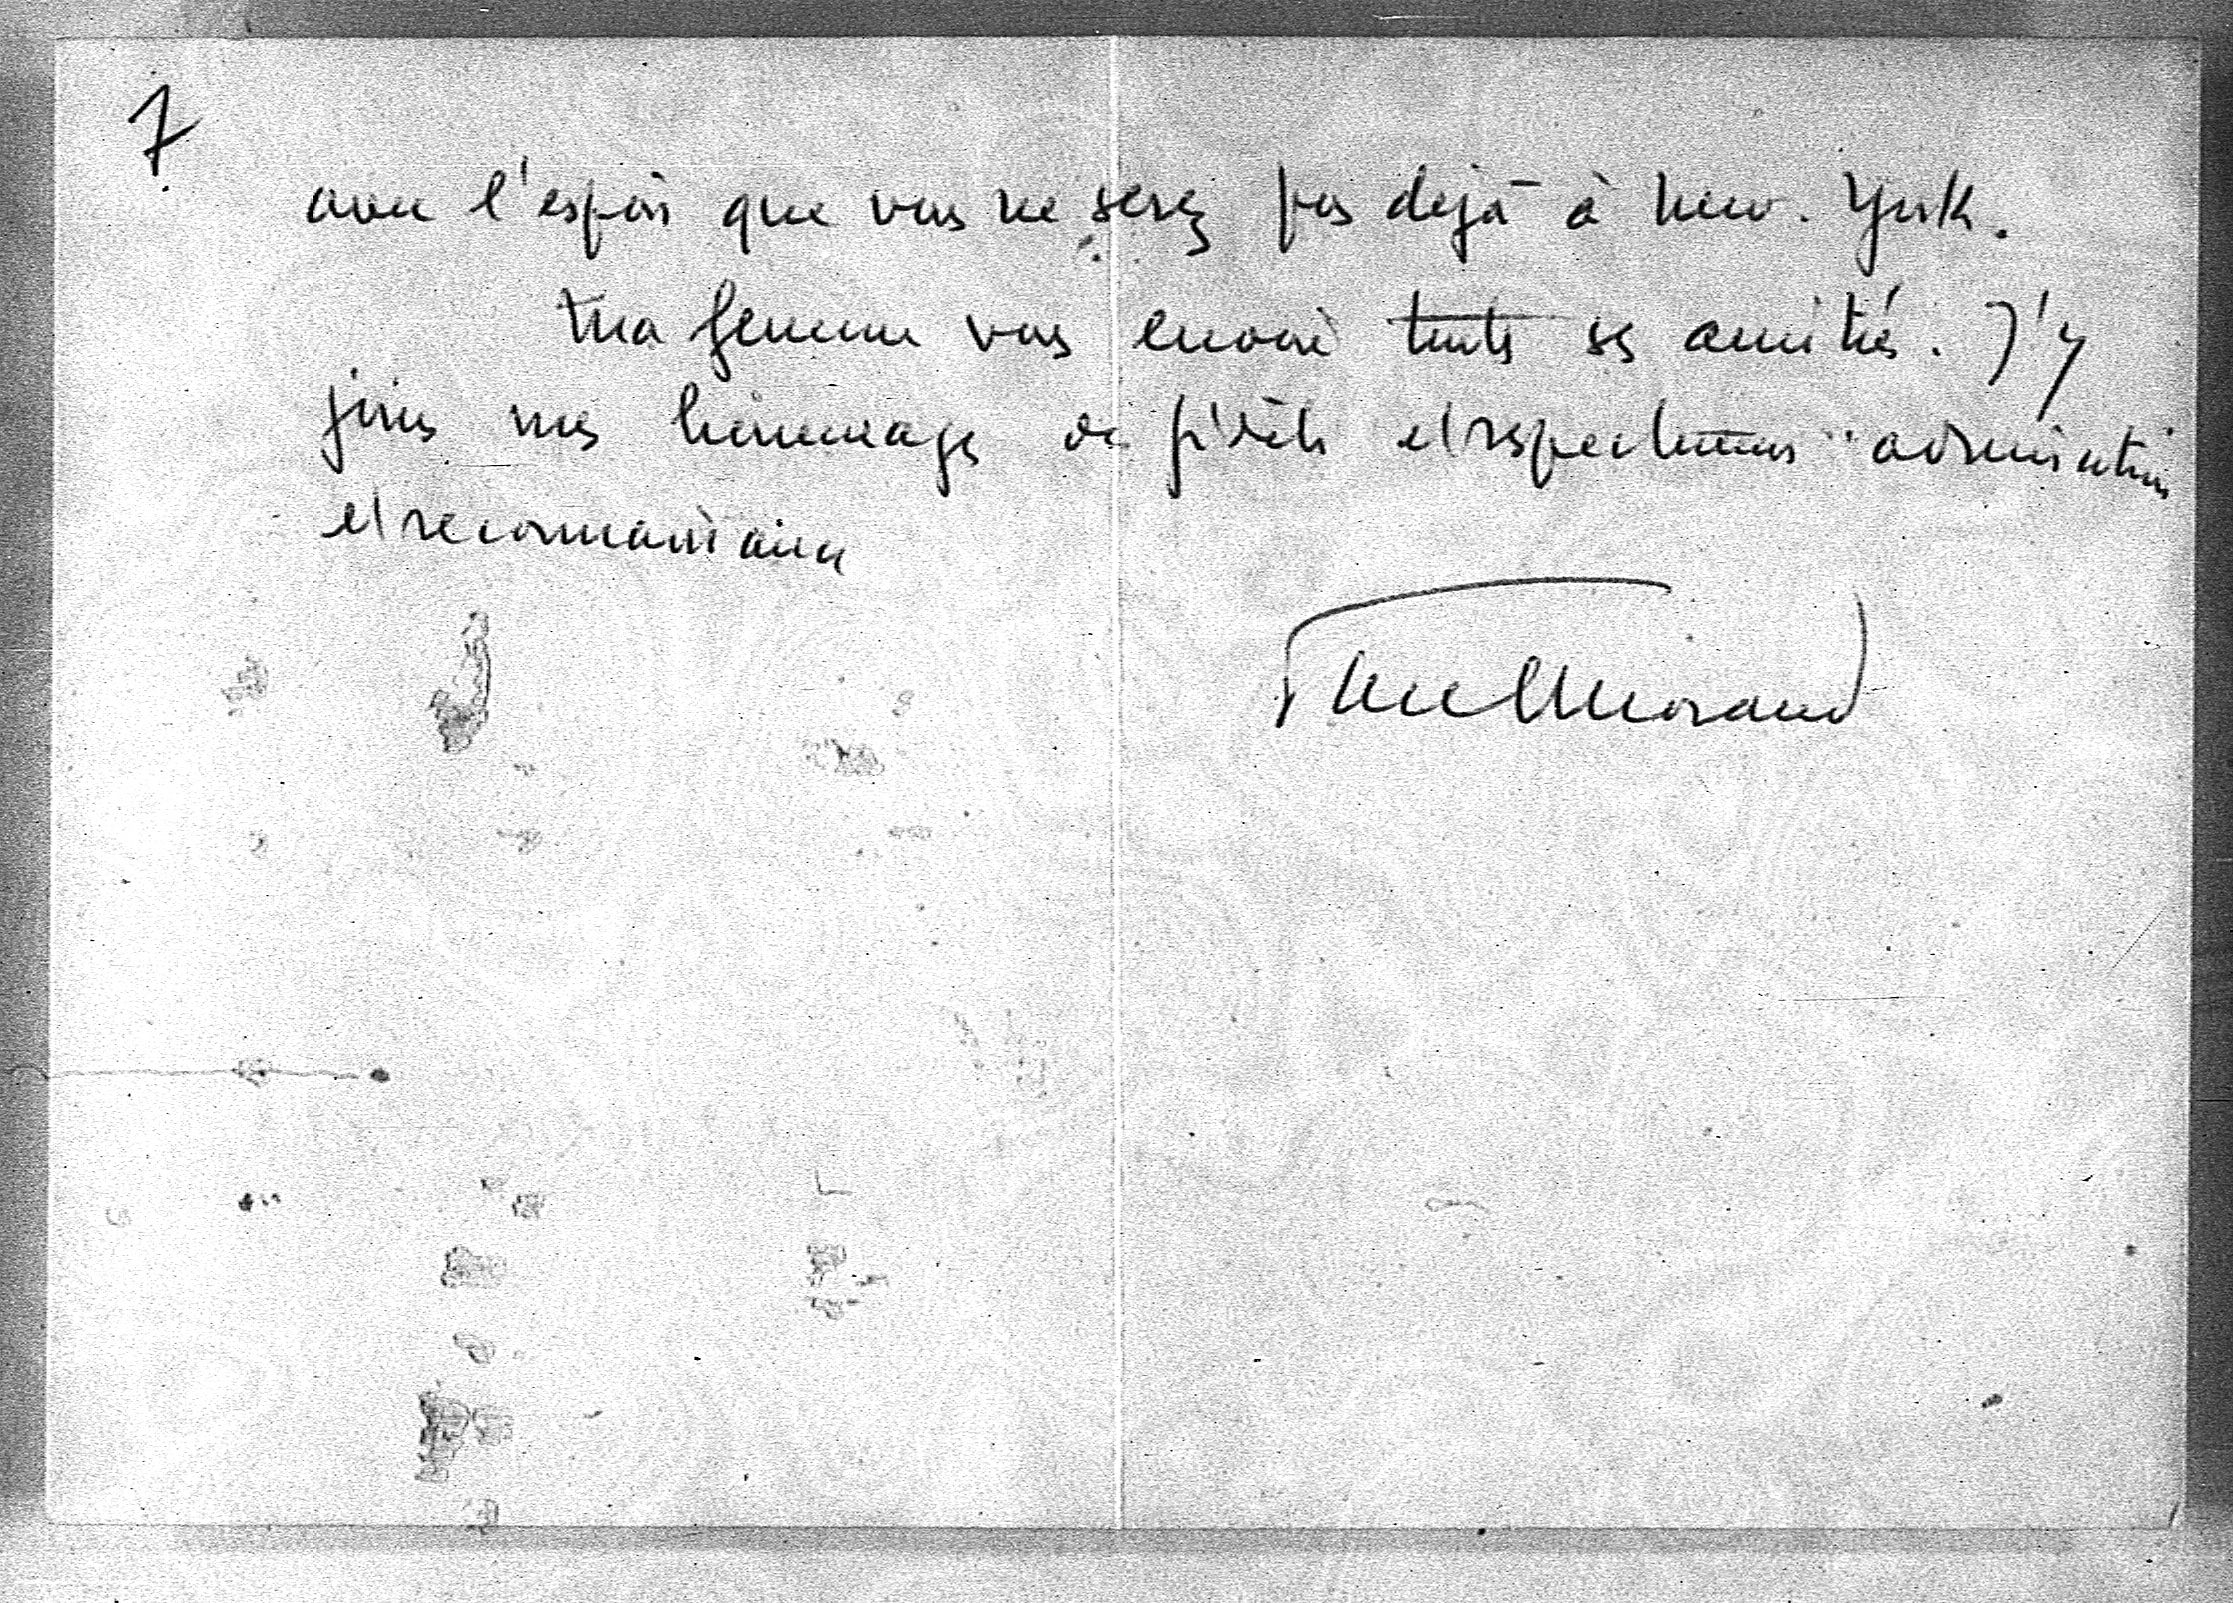 7
avec l'espoir que vous ne serez pas dejà à New-York.
Ma femme vous envoie toutes ses amitiés. J'y
joins mes hommages de fidèle et respectueuse admiration
et reconnaissance
Paul Morand